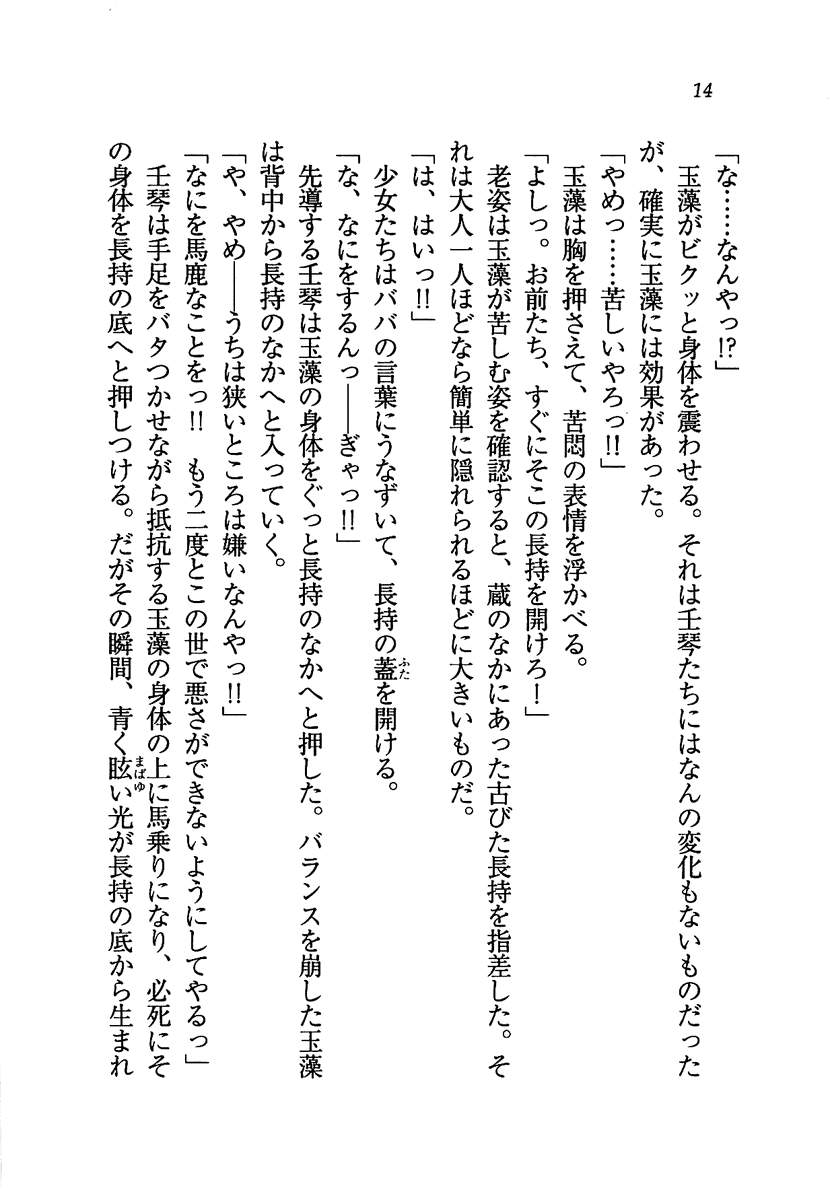 14
「な……なんやっ!?」
　玉藻がビクッと身体を震わせる。それは壬琴たちにはなんの変化もないものだった
が、確実に玉藻には効果があった。
「やめっ……苦しいやろっ!!」
　玉藻は胸を押さえて、苦悶の表情を浮かべる。
「よしっ。お前たち、すぐにそこの長持を開けろ！」
　老婆は玉藻が苦しむ姿を確認すると、蔵のなかにあった古びた長持を指差した。そ
れは大人一人ほどなら簡単に隠れられるほどに大きいものだ。
「は、はいっ!!」
　少女たちはババの言葉にうなずいて、長持の蓋を開ける。
「な、なにをするんっ――ぎゃっ!!」
　先導する壬琴は玉藻の身体をぐっと長持のなかへと押した。バランスを崩した玉藻
は背中から長持のなかへと入っていく。
「や、やめ――うちは狭いところは嫌いなんやっ!!」
「なにを馬鹿なことをっ!!　もう二度とこの世で悪さができないようにしてやるっ」
　壬琴は手足をバタつかせながら抵抗する玉藻の身体の上に馬乗りになり、必死にそ
の身体を長持の底へと押しつける。だがその瞬間、青く眩い光が長持の底から生まれ